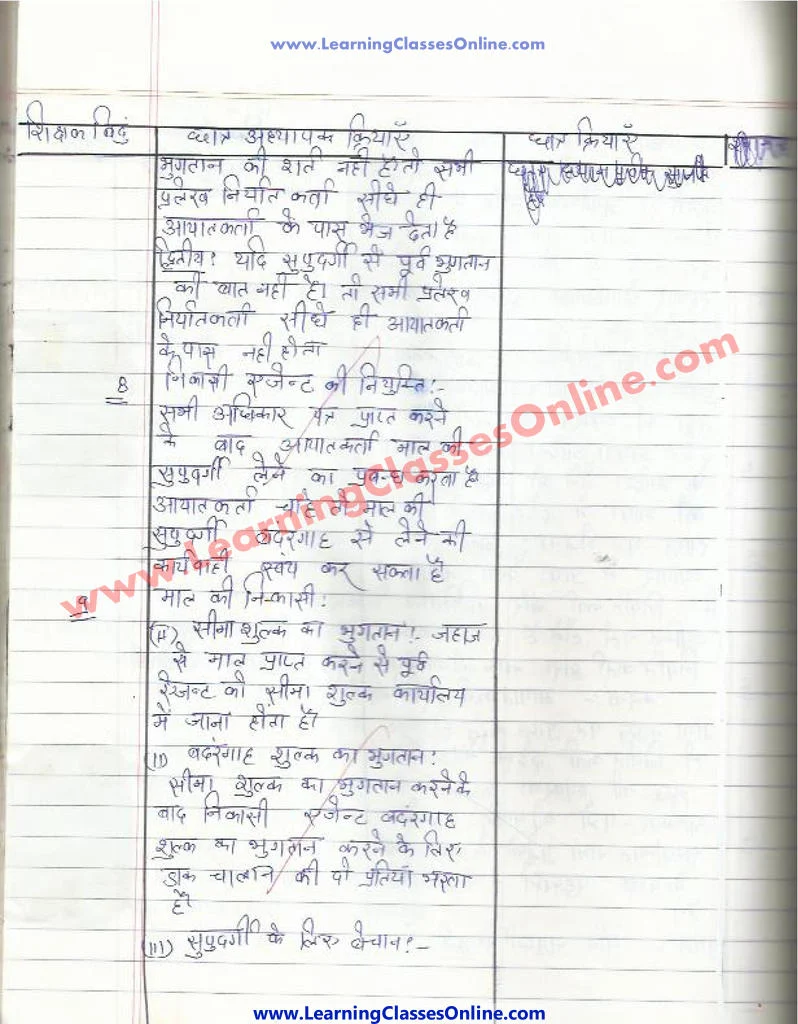 www.LearningClassesOnline.com
शिक्षक बिंदु छात्र अध्यापक क्रियाएँ छात्र क्रियाएँ
भुगतान की शर्त नही हो तो सभी
प्रलेख निर्यात कर्ता सीधे ही
आयातकर्ता के पास भेज देता है
द्वितीय! यदि सुपुदर्गी से पूर्व भुगतान
की बात नही है। तो सभी प्रलेख
निर्यातकर्ता सीधे ही आयातकर्ता
के पास नही होता
8 निकासी एजेन्ट की नियुक्ति!-
सभी अधिकार पत्र प्राप्त करने
के बाद आयातकर्ता माल की
सुपुदर्गी लेने का प्रबन्ध करता है
आयातकर्ता चाहे तो माल की
सुपुदर्गी बदंरगाह से लेने की
कार्यवाही स्वय कर सक्ता है
9 माल की निकासी!
सीमा शुल्क का भुगतान!. जहाज
से माल प्राप्त करने से पूर्व
ऐजन्ट को सीमा शुल्क कार्यालय
में जाना होता है।
(II) बदंरगाह शुल्क का भुगतान!
सीमा शुल्क का भुगतान करने के
बाद निकासी एजेन्ट बदंरगाह
शुल्क का भुगतान करने के लिए
डाक चालान की दो प्रतियां भरता
है।
(III) सुपुदर्गी के लिए!-
www.LearningClassesOnline.com
www.LearningClassesOnline.com